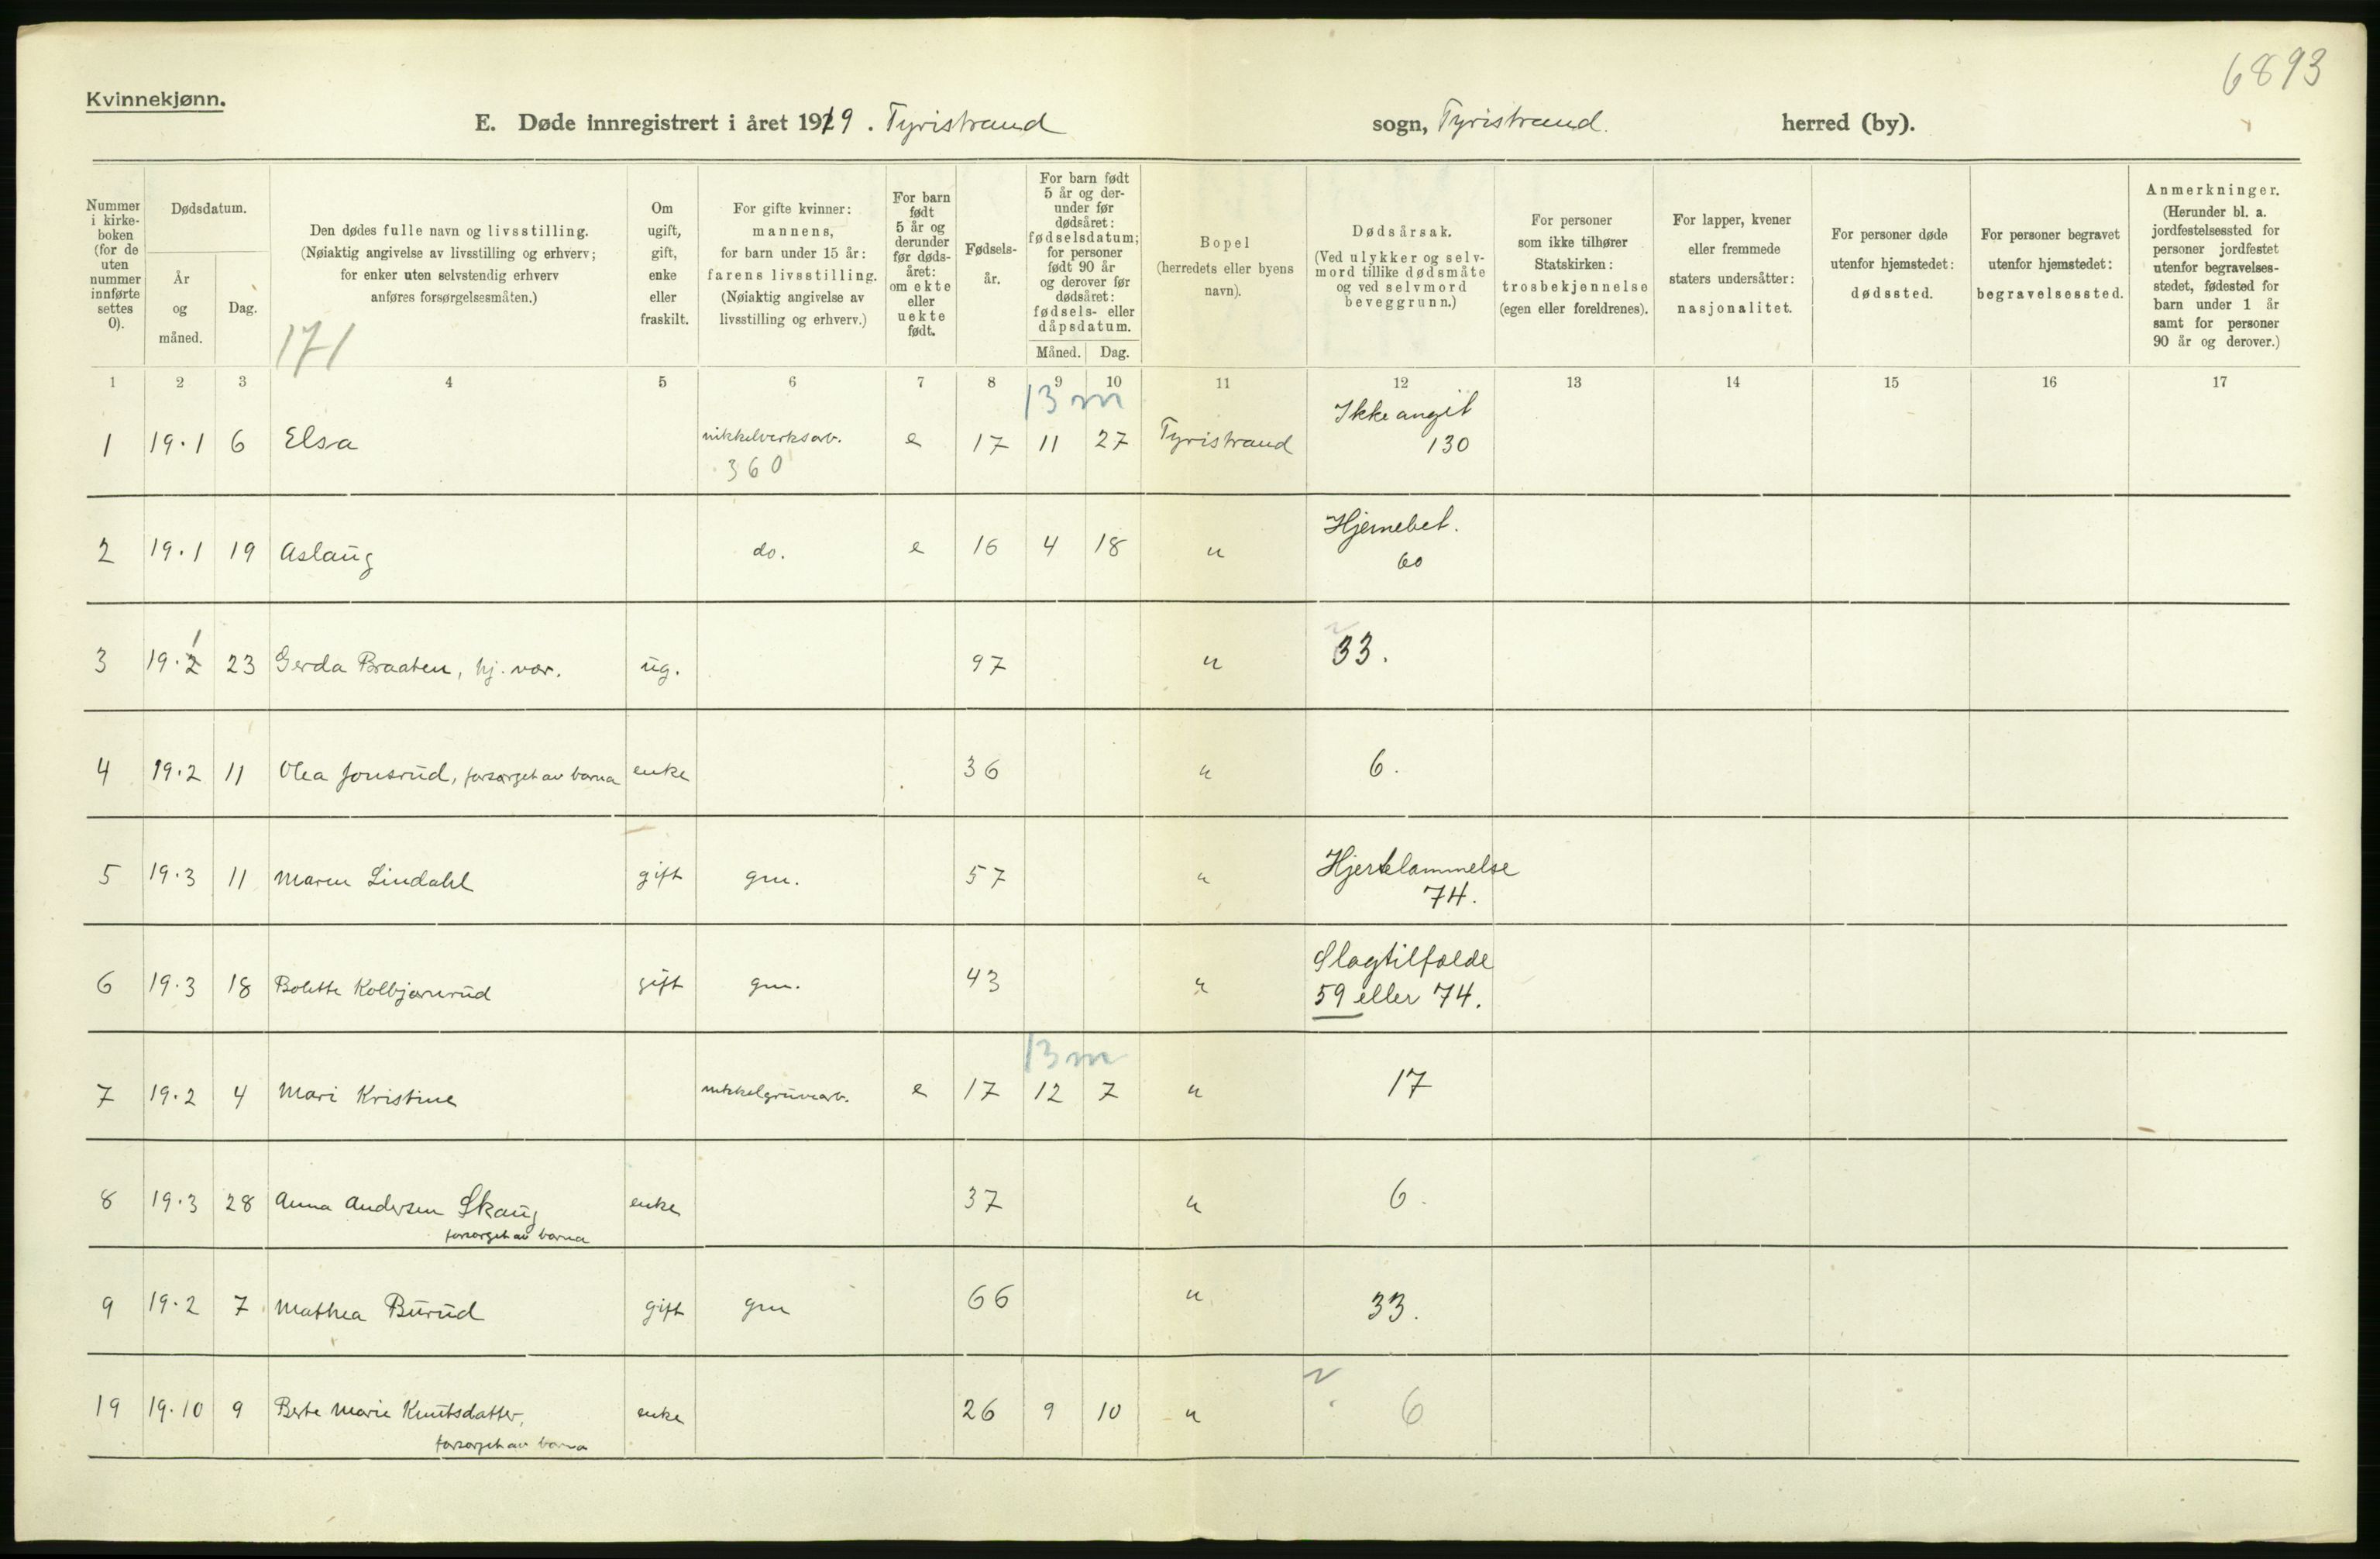 6893
Kvinnekjønn.
E. Døde innregistrert i året 1919. Tyristrand sogn, Tyristrand herred (by).
Nummer i kirke-boken (for de uten nummer innførte settes 0).
Dødsdatum.
År og måned.
Dag.
Den dødes fulle navn og livsstilling.
(Nøiaktig angivelse av livsstilling og erhverv;
for enker uten selvstendig erhverv
anføres forsørgelsesmåten.)
171
Om ugift, gift, enke eller fraskilt.
For gifte kvinner:
mannens,
for barn under 15 år:
farens livsstilling.
(Nøiaktig angivelse av
livsstilling og erhverv.)
For barn født 5 år og derunder før døds-året: om ekte eller uekte født.
Fødsels-år.
For barn født 5 år og der-under før dødsåret: fødselsdatum; for personer født 90 år og derover før dødsåret: fødsels- eller dåpsdatum.
Måned. Dag.
Bopel
(herredets eller byens
navn).
Dødsårsak.
(Ved ulykker og selv-
mord tillike dødsmåte
og ved selvmord
beveggrunn.)
For personer
som ikke tilhører
Statskirken:
trosbekjennelse
(egen eller foreldrenes).
For lapper, kvener
eller fremmede
staters undersåtter:
nasjonalitet.
For personer døde
utenfor hjemstedet:
dødssted.
For personer begravet
utenfor hjemstedet:
begravelsessted.
Anmerkninger.
(Herunder bl. a.
jordfestelsessted for
personer jordfestet
utenfor begravelses-
stedet, fødested for
barn under 1 år
samt for personer
90 år og derover.)
1 2 3 4 5 6 7 8 9 10 11 12 13 14 15 16 17
13 m
Ikke angit
1 19.1 6 Elsa nikkelverksarb. e 17 11 27 Tyristrand 130
360
Hjernebet.
2 19.1 19 Aslaug do. e 16 4 18 " 60
1
3 19.2 23 Gerda Braaten, hj. vær. ug. 97 " 33.
4 19.2 11 Olea Jonsrud, forsørget av barna enke 36 " 6.
5 19.3 11 Maren Lindahl gift grn. 57 " Hjertelammelse
74.
Slagtilfælde
6 19.3 18 Bolette Kolbjørnrud gift grn. 43 " 59 eller 74.
13 m
7 19.2 4 Mari Kristine nikkelgruvearb. e 17 12 7 " 17
8 19.3 28 Anna Andersen Skaug enke 37 " 6.
forsørget av barna
9 19.2 7 Mathea Burud gift grn 66 " 33.
19 19.10 9 Berte Marie Knutsdatter, enke 26 9 10 " 6
forsørget av barna